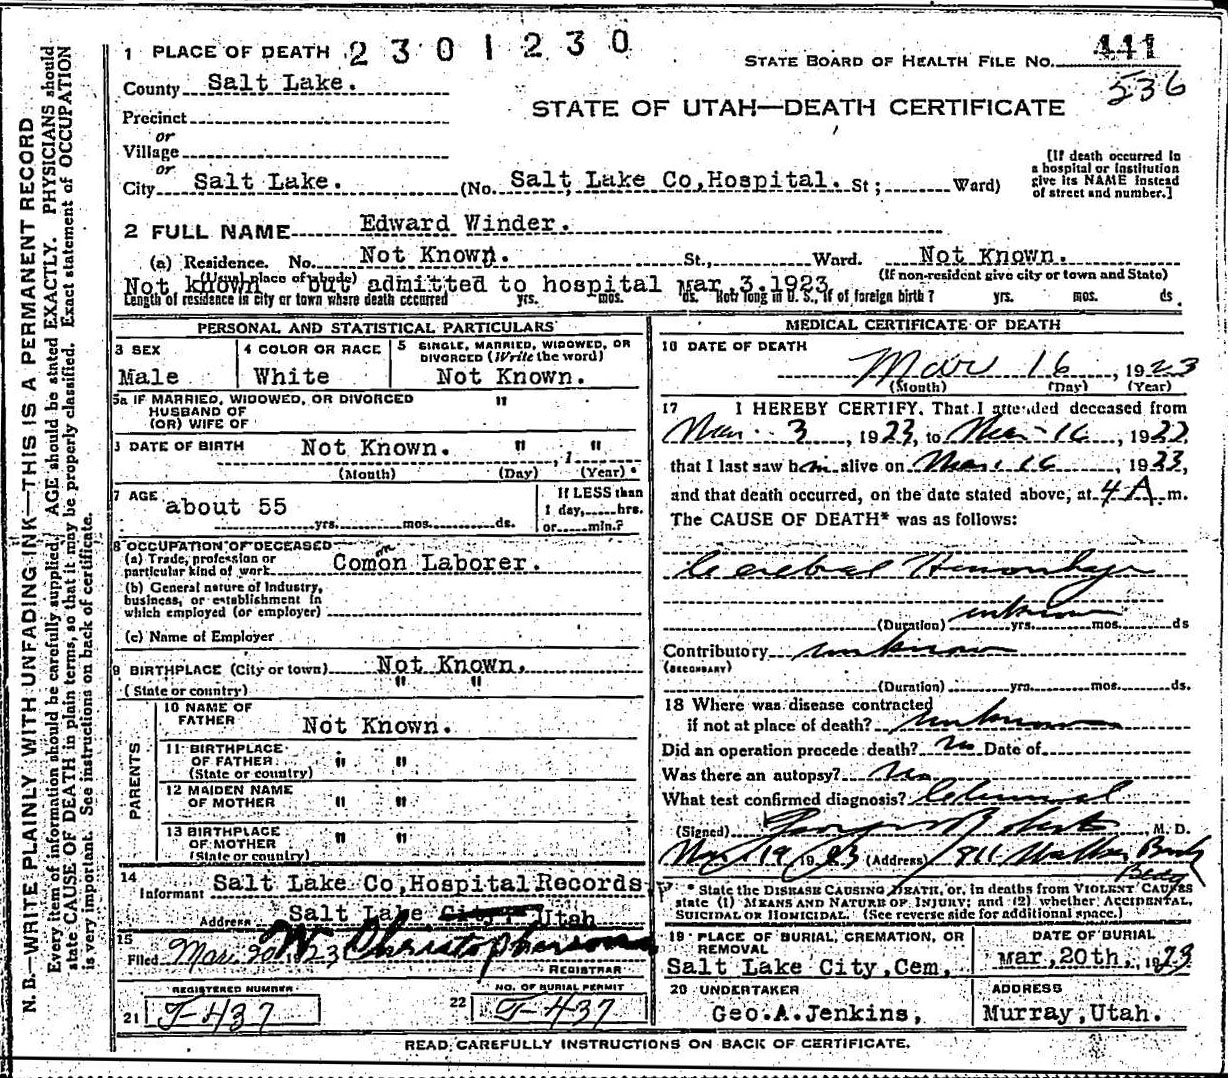 1 PLACE OF DEATH 2 3 0 1 2 3 0
STATE BOARD OF HEALTH FILE NO. 441
536
County Salt Lake.
STATE OF UTAH—DEATH CERTIFICATE
Precinct
or
Village
or
City Salt Lake. (No. Salt Lake Co, Hospital. St; Ward)
[If death occurred in
a hospital or institution
give its NAME instead
of street and number.]
2 FULL NAME Edward Winder.
(a) Residence. No. Not Known. St., Ward. Not Known.
(Usual place of abode) (If non-resident give city or town and State)
Not known but admitted to hospital mar,3.1923
Length of residence in city or town where death occurred yrs. mos. ds. How long in U. S., if of foreign birth? yrs. mos. ds.
PERSONAL AND STATISTICAL PARTICULARS
3 SEX
Male
4 COLOR OR RACE
White
5 SINGLE, MARRIED, WIDOWED, OR
DIVORCED (Write the word)
Not Known.
5a IF MARRIED, WIDOWED, OR DIVORCED "
HUSBAND OF
(OR) WIFE OF
DATE OF BIRTH Not Known. " , 1 "
(Month) (Day) (Year)
7 AGE about 55
yrs. mos. ds.
If LESS than
1 day, hrs.
or min.?
8 OCCUPATION OF DECEASED
(a) Trade, profession or
particular kind of work Comon Laborer.
on
(b) General nature of Industry,
business, or establishment in
which employed (or employer)
(c) Name of Employer
9 BIRTHPLACE (City or town) Not Known.
(State or country) " "
PARENTS
10 NAME OF
FATHER Not Known.
11 BIRTHPLACE
OF FATHER " "
(State or country)
12 MAIDEN NAME
OF MOTHER " "
13 BIRTHPLACE
OF MOTHER " "
(State or country)
14
Informant Salt Lake Co, Hospital Records,
Address Salt Lake City, Utah
15
Filed Mar. 20 1923 W Christopherson
REGISTRAR
REGISTERED NUMBER
21 F-437
NO. OF BURIAL PERMIT
22 F-437
MEDICAL CERTIFICATE OF DEATH
16 DATE OF DEATH
Mar 16, 1923
(Month) (Day) (Year)
17 I HEREBY CERTIFY, That I attended deceased from
Mar. 3, 1923, to Mar. 16, 1923
that I last saw him alive on Mar. 16, 1923,
and that death occurred, on the date stated above, at 4 A m.
The CAUSE OF DEATH* was as follows:
Cerebral Hemorrhage
(Duration) unknown yrs. mos. ds
Contributory unknown
(SECONDARY)
(Duration) yrs. mos. ds.
18 Where was disease contracted
if not at place of death? unknown
Did an operation precede death? No Date of
Was there an autopsy? No
What test confirmed diagnosis? Clinical
(Signed) George N Roberts, M. D.
Mar 19 1923 (Address) 811 Walker Bank
Bldg
* State the DISEASE CAUSING DEATH, or, in deaths from VIOLENT CAUSES
state (1) MEANS AND NATURE OF INJURY; and (2) whether ACCIDENTAL,
SUICIDAL OR HOMICIDAL. (See reverse side for additional space.)
19 PLACE OF BURIAL, CREMATION, OR
REMOVAL
Salt Lake City, Cem,
DATE OF BURIAL
Mar, 20th., 1923
20 UNDERTAKER
Geo. A. Jenkins,
ADDRESS
Murray, Utah.
READ CAREFULLY INSTRUCTIONS ON BACK OF CERTIFICATE.
N. B.—WRITE PLAINLY WITH UNFADING INK—THIS IS A PERMANENT RECORD
Every item of information should be carefully supplied. AGE should be stated EXACTLY. PHYSICIANS should
state CAUSE OF DEATH in plain terms, so that it may be properly classified. Exact statement of OCCUPATION
is very important. See instructions on back of certificate.